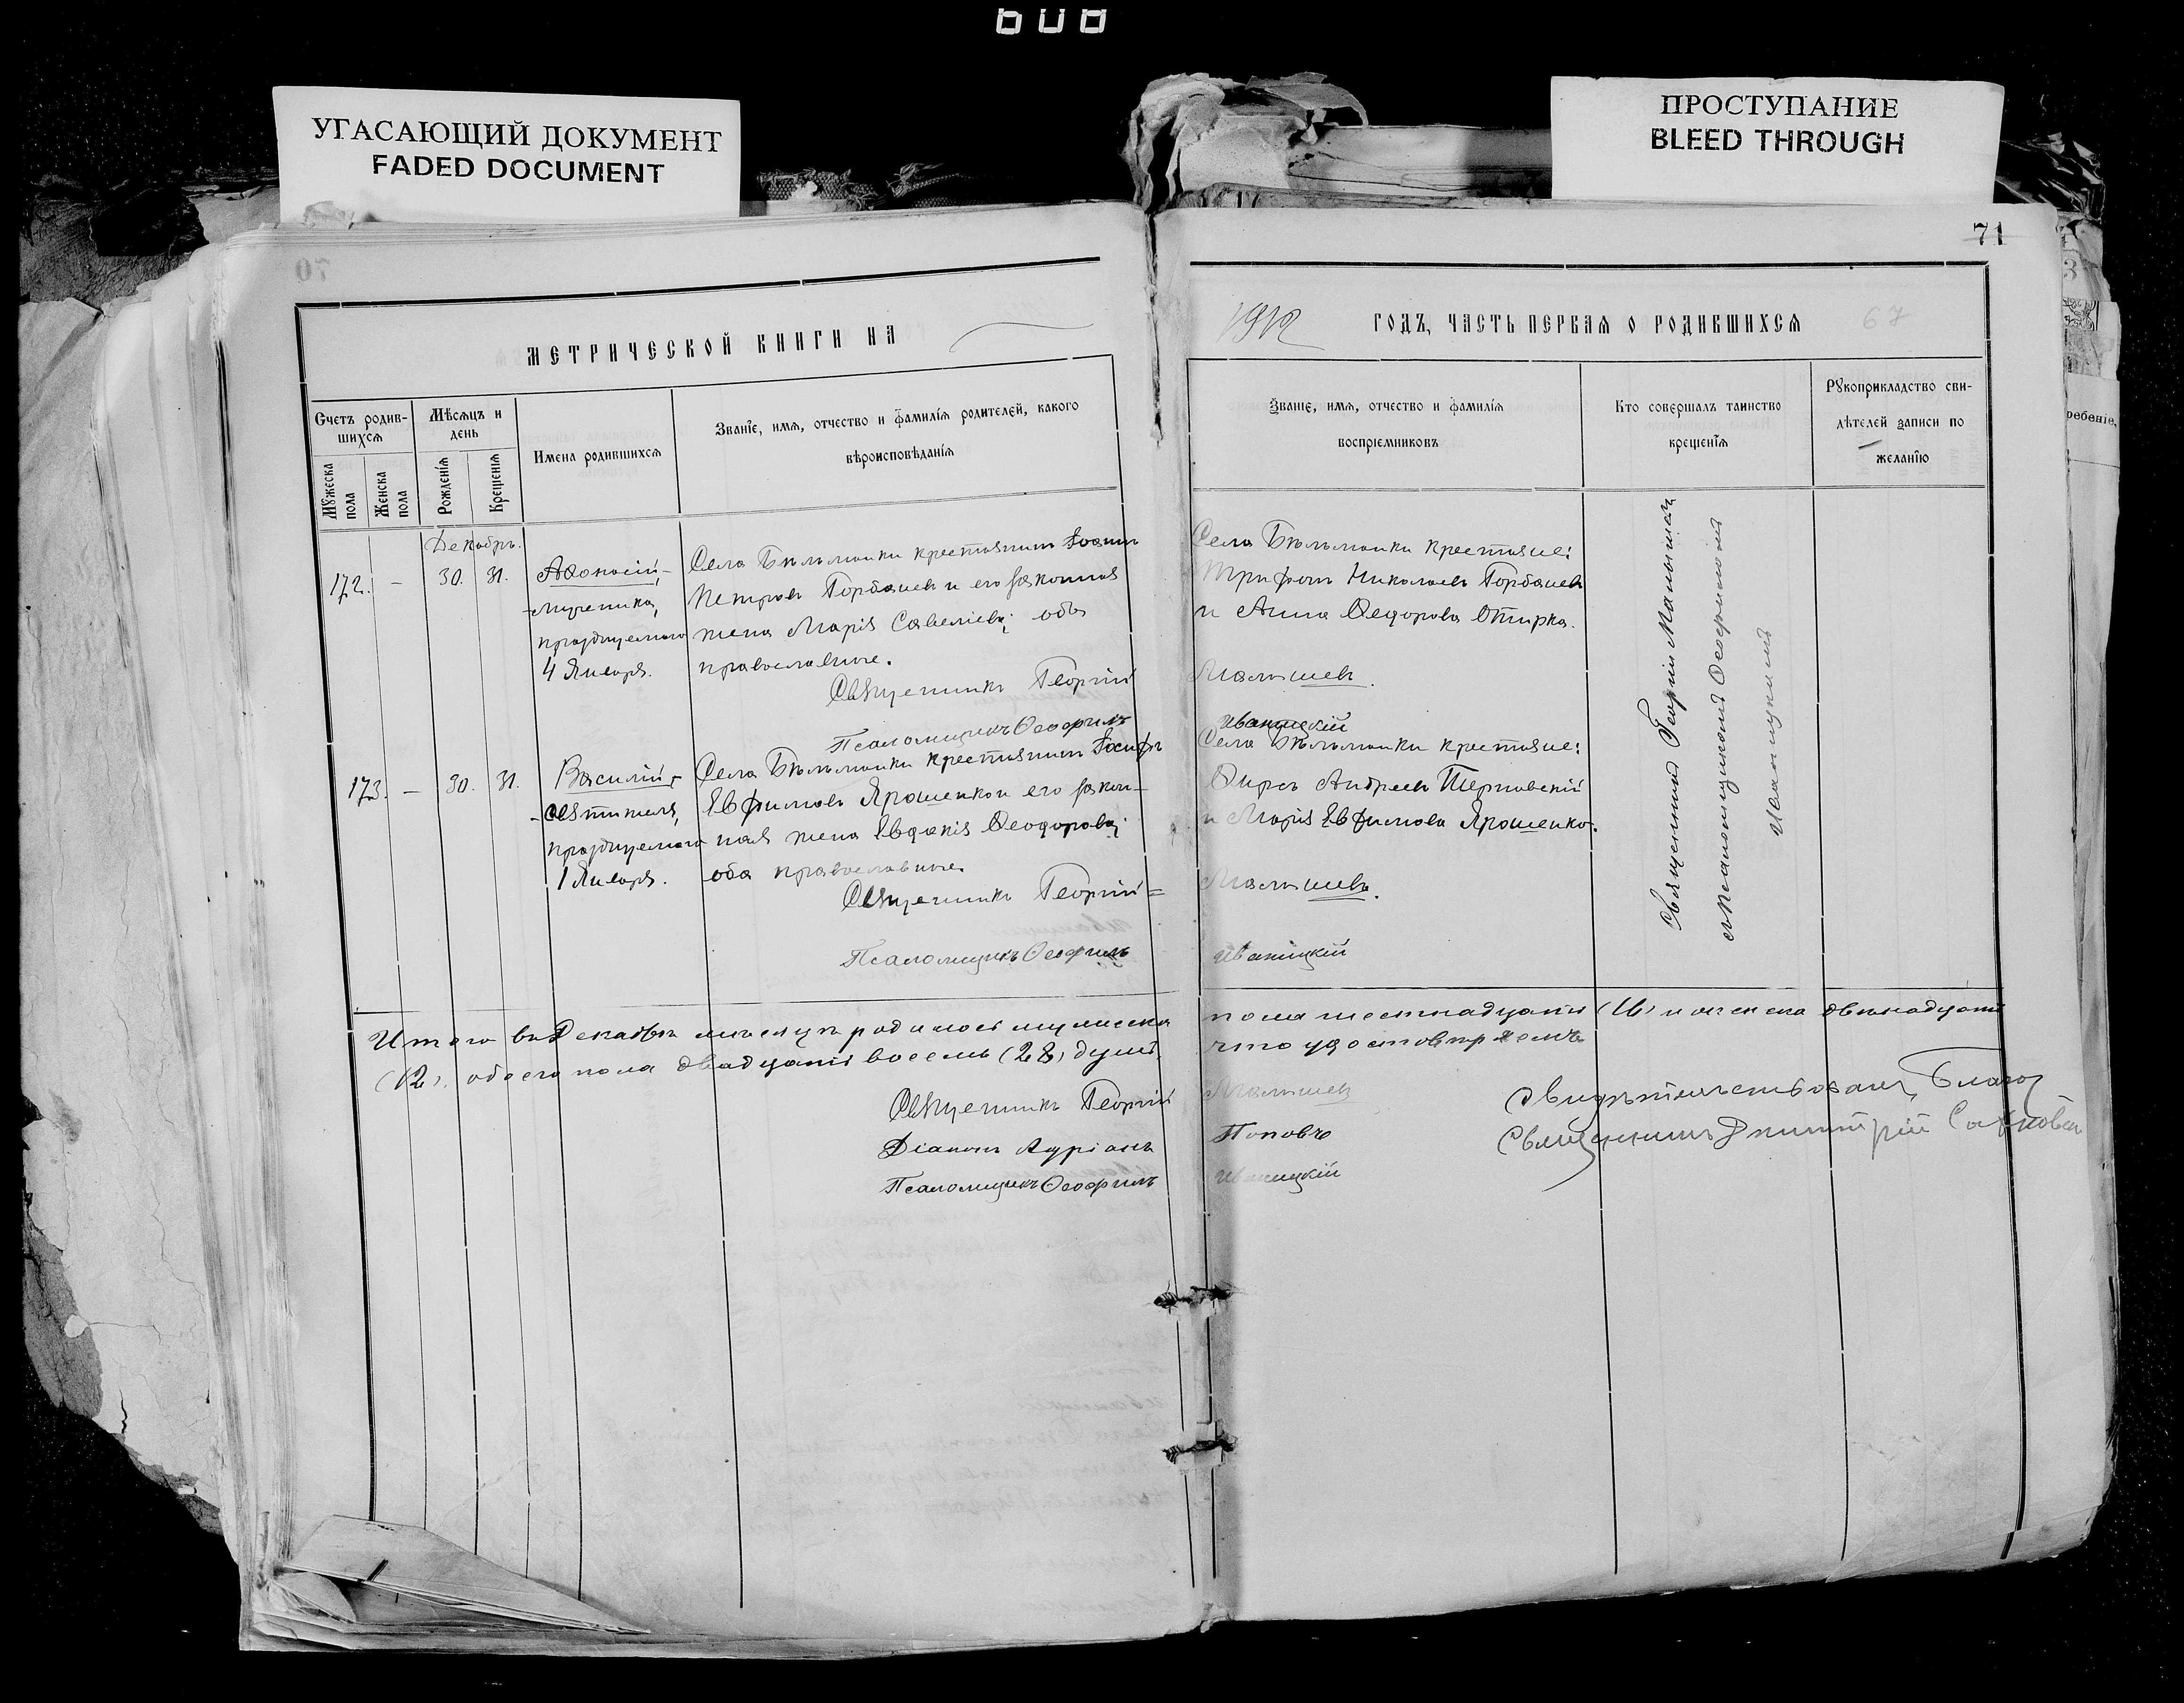 608
УГАСАЮЩИЙ ДОКУМЕНТ
FADED DOCUMENT
ПРОСТУПАНИЕ
BLEED THROUGH
70
71
67
МЕТРИЧЕСКОЙ КНИГИ НА
1912 ГОДЪ, ЧАСТЬ ПЕРВАЯ О РОДИВШИХСЯ
Счетъ родив-
шихся
Мужеска пола
Женска пола
Мѣсяцъ и
день
Рожденія
Крещенія
Имена родившихся
Званіе, имя, отчество и фамилія родителей, какого
вѣроисповѣданія
Званіе, имя, отчество и фамилія
воспріемниковъ
Кто совершалъ таинство
крещенія
Рукоприкладство сви-
дѣтелей записи по
желанію
ребеніе,
Декабрь.
172. – 30. 31.
Аѳонасій,-
-мученика,
празднуемаго
4 Января.
Села Бѣльманки крестьянинъ Іоаннъ
Петровъ Горбачевъ и его законная
жена Марія Савеліева; оба
православные.
Священникъ Георгій Малышевъ.
Псаломщикъ Ѳеофилъ Иваницкій
Села Бѣльманки крестьяне:
Трифонъ Николаевъ Горбачевъ
и Анна Ѳеодорова Отирка.
173. – 30. 31.
Василій,-
-святителя,
празднуемаго
1 Января.
Села Бѣльманки крестьянинъ Іосифъ
Евфимовъ Ярошенко и его закон-
ная жена Евдокія Ѳеодорова;
оба православные.
Священникъ Георгій = Малышевъ.
Псаломщикъ Ѳеофилъ Иваницкій
Села Бѣльманки крестьяне:
Андреевъ Терновскій
и Марія Евфимова Ярошенко.
Священникъ Георгій Малышевъ
съ псаломщикомъ Ѳеофиломъ
Иваницкимъ
Итого въ Декабрѣ мѣсяцѣ родилось мужеска пола шестнадцать (16) и женска двѣнадцать
(12), обоего пола двадцать восемь (28) душъ, что удостовѣряемъ
Священникъ Георгій Малышевъ
Діаконъ Адріанъ Поповъ
Псаломщикъ Ѳеофилъ Иваницкій
Свидѣтельствовалъ, Благоч
Священникъ Димитрій